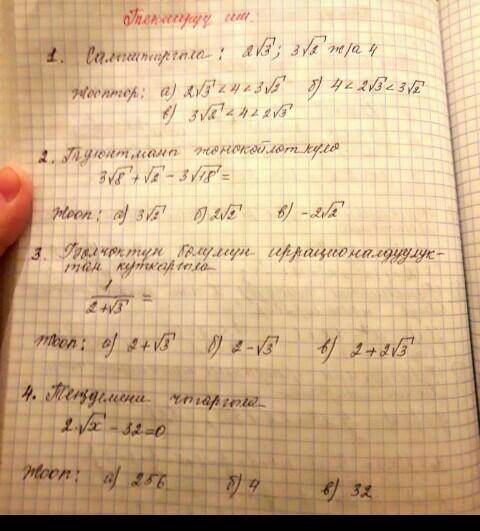 Текшерүү иш.
1. Салыштыргыла: 2√3; 3√2 ж/а 4
Жооптор: а) 2√3 < 4 < 3√2 б) 4 < 2√3 < 3√2
в) 3√2 < 4 < 2√3
2. Туюнтманы жөнөкөйлөткүлө
3√8 + √2 - 3√18 =
Жооп: а) 3√2 б) 2√2 в) -2√2
3. Бөлчөктүн бөлүмүн иррационалдуулук-
тан куткаргыла
1
/ 2+√3 =
Жооп: а) 2+√3 б) 2-√3 в) 2+2√3
4. Теңдемени чыгаргыла
2·√x - 32=0
Жооп: а) 256 б) 4 в) 32